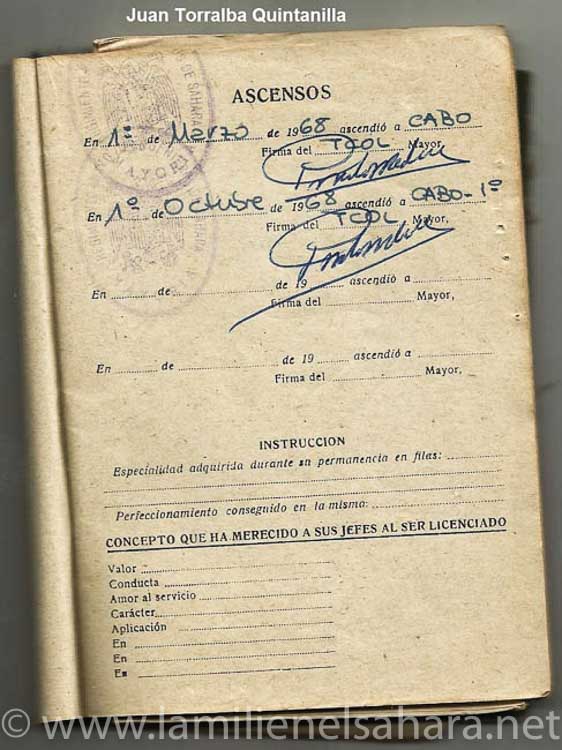 Juan Torralba Quintanilla
DE SAHARA
MAYORIA
ASCENSOS
En 1º de Marzo de 1968 ascendió a CABO
Firma del TCOL Mayor,
En 1º de Octubre de 1968 ascendió a CABO-1º
Firma del TCOL Mayor,
En ........ de ........ de 19 ........ ascendió a ........
Firma del ........ Mayor,
En ........ de ........ de 19 ........ ascendió a ........
Firma del ........ Mayor,
INSTRUCCION
Especialidad adquirida durante su permanencia en filas: ........
Perfeccionamiento conseguido en la misma: ........
CONCEPTO QUE HA MERECIDO A SUS JEFES AL SER LICENCIADO
Valor ........
Conducta ........
Amor al servicio ........
Carácter ........
Aplicación ........
En ........
En ........
En ........
© www.lamilienelsahara.net